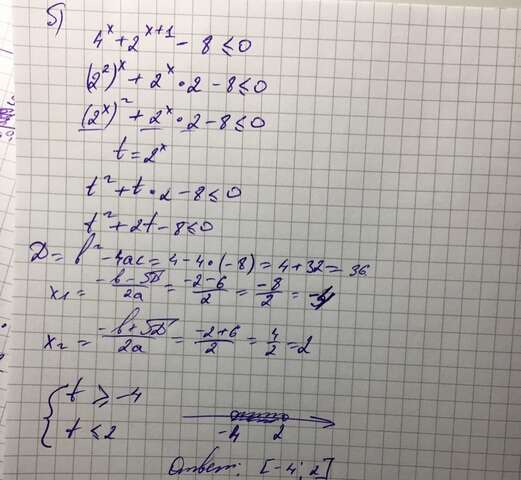 б)
4ˣ + 2ˣ⁺¹ - 8 ≤ 0
(2²)ˣ + 2ˣ · 2 - 8 ≤ 0
(2ˣ)² + 2ˣ · 2 - 8 ≤ 0
t = 2ˣ
t² + t · 2 - 8 ≤ 0
t² + 2t - 8 ≤ 0
D = b² - 4ac = 4 - 4 · (-8) = 4 + 32 = 36
x₁ = (-b - √D)/2a = (-2 - 6)/2 = -8/2 = -4
x₂ = (-b + √D)/2a = (-2 + 6)/2 = 4/2 = 2
{ t ≥ -4
t ≤ 2
-4 2
Ответ: [-4; 2]